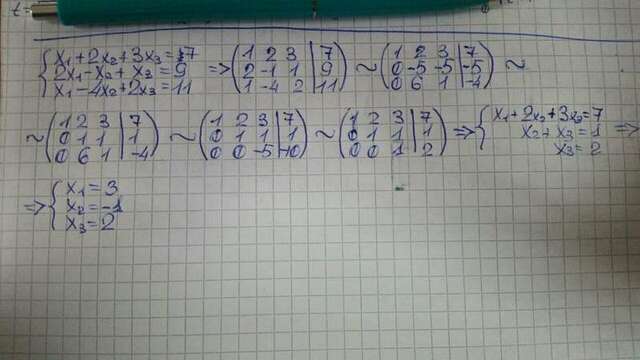 {x₁+2x₂+3x₃=7 2x₁-x₂+x₃=9 x₁-4x₂+2x₃=11 => (1 2 3 | 7; 2 -1 1 | 9; 1 -4 2 | 11) ~ (1 2 3 | 7; 0 -5 -5 | -5; 0 6 1 | -4) ~
~ (1 2 3 | 7; 0 1 1 | 1; 0 6 1 | -4) ~ (1 2 3 | 7; 0 1 1 | 1; 0 0 -5 | -10) ~ (1 2 3 | 7; 0 1 1 | 1; 0 0 1 | 2) => {x₁+2x₂+3x₃=7 x₂+x₃=1 x₃=2 =>
=> {x₁=3 x₂=-1 x₃=2